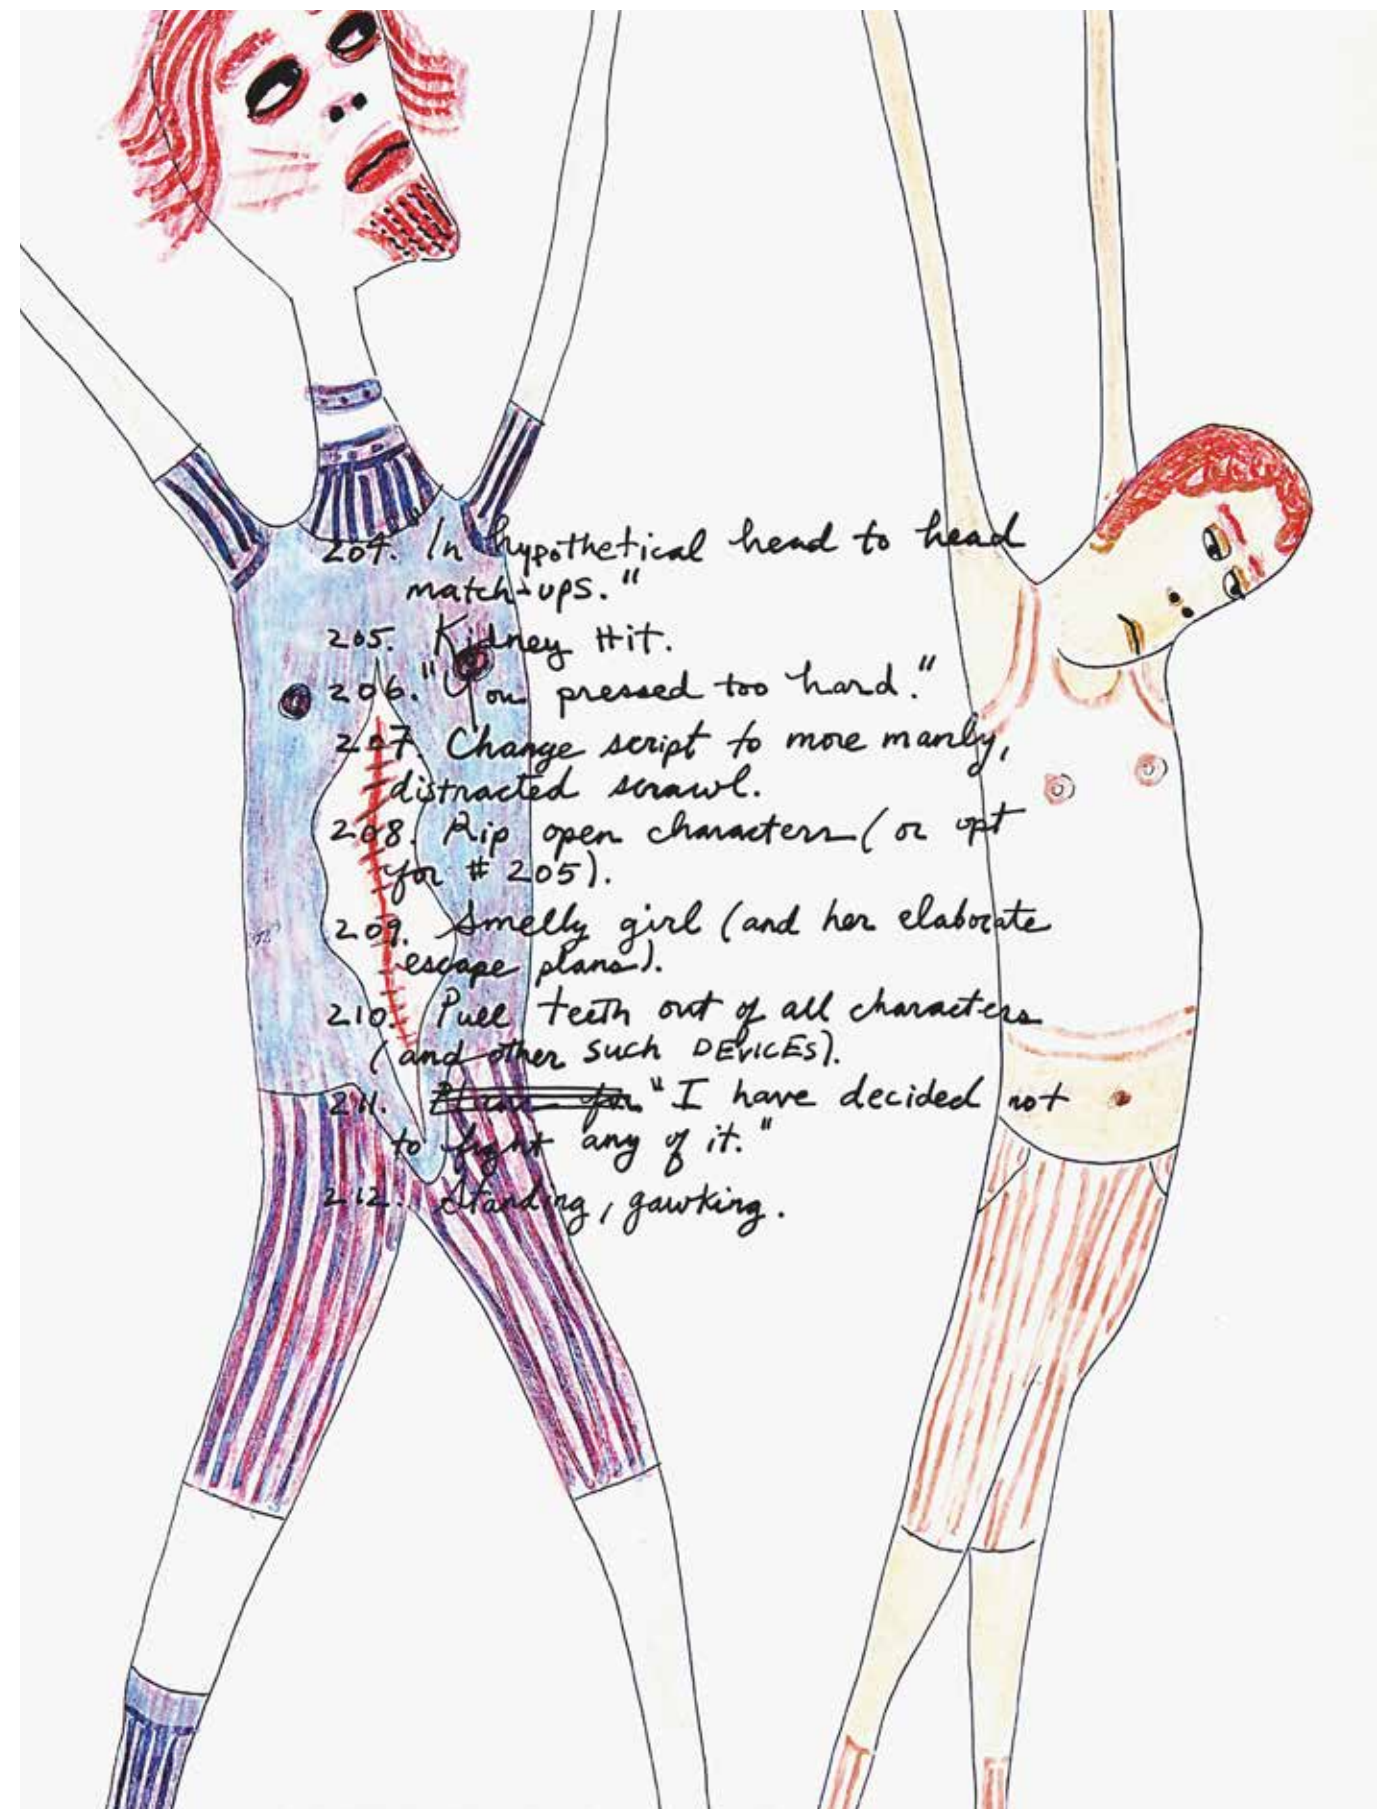 204. "In hypothetical head to head
match-ups."
205. Kidney Hit.
206. "You pressed too hard."
207. Change script to more manly,
distracted scrawl.
208. Rip open characters (or opt
for # 205).
209. Smelly girl (and her elaborate
escape plans).
210. Pull teeth out of all characters
(and other SUCH DEVICES).
211. "I have decided not
to fight any of it."
212. Standing, gawking.